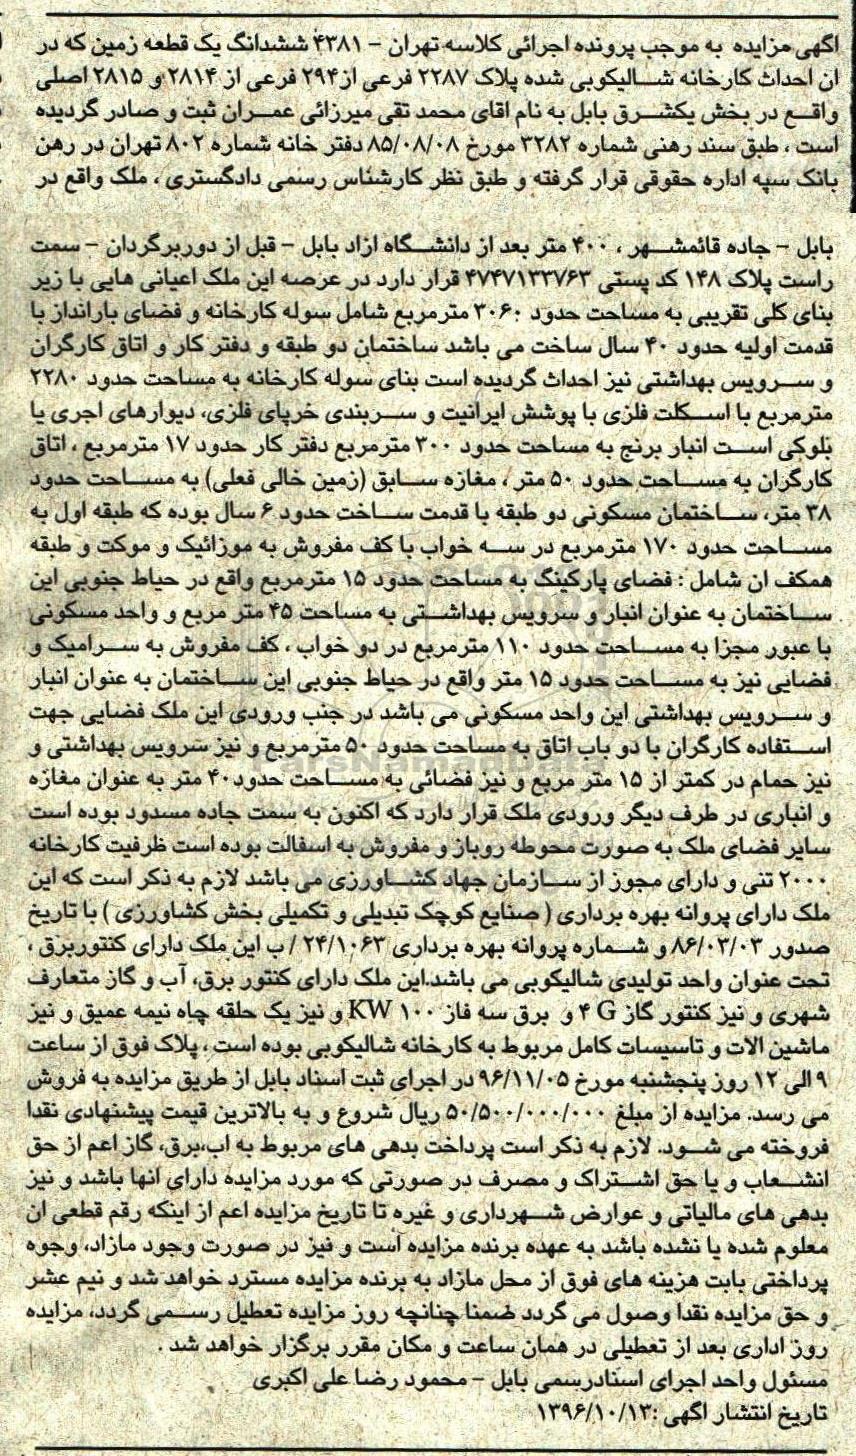 اگهی مزایده به موجب پرونده اجرائی کلاسه تهران - ۴۳۸۱ ششدانگ یک قطعه زمین که در
ان احداث کارخانه شالیکوبی شده پلاک ۲۲۸۷ فرعی از۲۹۴ فرعی از ۲۸۱۴ و ۲۸۱۵ اصلی
واقع در بخش یکشرق بابل به نام اقای محمد تقی میرزائی عمران ثبت و صادر گردیده
است ، طبق سند رهنی شماره ۳۲۸۲ مورخ ۸۵/۰۸/۰۸ دفتر خانه شماره ۸۰۲ تهران در رهن
بانک سپه اداره حقوقی قرار گرفته و طبق نظر کارشناس رسمی دادگستری ، ملک واقع در
بابل - جاده قائمشهر ، ۴۰۰ متر بعد از دانشگاه ازاد بابل - قبل از دوربرگردان - سمت
راست پلاک ۱۴۸ کد پستی ۴۷۴۷۱۳۳۷۶۳ قرار دارد در عرصه این ملک اعیانی هایی با زیر
بنای کلی تقریبی به مساحت حدود ۳۰۶۰ مترمربع شامل سوله کارخانه و فضای بارانداز با
قدمت اولیه حدود ۴۰ سال ساخت می باشد ساختمان دو طبقه و دفتر کار و اتاق کارگران
و سرویس بهداشتی نیز احداث گردیده است بنای سوله کارخانه به مساحت حدود ۲۲۸۰
مترمربع با اسکلت فلزی با پوشش ایرانیت و سربندی خرپای فلزی، دیوارهای اجری یا
بلوکی است انبار برنج به مساحت حدود ۳۰۰ مترمربع دفتر کار حدود ۱۷ مترمربع ، اتاق
کارگران به مساحت حدود ۵۰ متر ، مغازه سابق (زمین خالی فعلی) به مساحت حدود
۳۸ متر، ساختمان مسکونی دو طبقه با قدمت ساخت حدود ۶ سال بوده که طبقه اول به
مساحت حدود ۱۷۰ مترمربع در سه خواب با کف مفروش به موزائیک و موکت و طبقه
همکف ان شامل : فضای پارکینگ به مساحت حدود ۱۵ مترمربع واقع در حیاط جنوبی این
ساختمان به عنوان انبار و سرویس بهداشتی به مساحت ۴۵ متر مربع و واحد مسکونی
با عبور مجزا به مساحت حدود ۱۱۰ مترمربع در دو خواب ، کف مفروش به سرامیک و
فضایی نیز به مساحت حدود ۱۵ متر واقع در حیاط جنوبی این ساختمان به عنوان انبار
و سرویس بهداشتی این واحد مسکونی می باشد در جنب ورودی این ملک فضایی جهت
استفاده کارگران با دو باب اتاق به مساحت حدود ۵۰ مترمربع و نیز سرویس بهداشتی و
نیز حمام در کمتر از ۱۵ متر مربع و نیز فضائی به مساحت حدود۴۰ متر به عنوان مغازه
و انباری در طرف دیگر ورودی ملک قرار دارد که اکنون به سمت جاده مسدود بوده است
سایر فضای ملک به صورت محوطه روباز و مفروش به اسفالت بوده است ظرفیت کارخانه
۲۰۰۰ تنی و دارای مجوز از سازمان جهاد کشاورزی می باشد لازم به ذکر است که این
ملک دارای پروانه بهره برداری ( صنایع کوچک تبدیلی و تکمیلی بخش کشاورزی ) با تاریخ
صدور ۸۶/۰۳/۰۳ و شماره پروانه بهره برداری ۲۴/۱۰۶۳ / ب این ملک دارای کنتوربرق ،
تحت عنوان واحد تولیدی شالیکوبی می باشد.این ملک دارای کنتور برق، آب و گاز متعارف
شهری و نیز کنتور گاز G ۴ و برق سه فاز ۱۰۰ KW و نیز یک حلقه چاه نیمه عمیق و نیز
ماشین الات و تاسیسات کامل مربوط به کارخانه شالیکوبی بوده است ، پلاک فوق از ساعت
۹ الی ۱۲ روز پنجشنبه مورخ ۹۶/۱۱/۰۵ در اجرای ثبت اسناد بابل از طریق مزایده به فروش
می رسد. مزایده از مبلغ ۵۰/۵۰۰/۰۰۰/۰۰۰ ریال شروع و به بالاترین قیمت پیشنهادی نقدا
فروخته می شود. لازم به ذکر است پرداخت بدهی های مربوط به اب،برق، گاز اعم از حق
انشعاب و یا حق اشتراک و مصرف در صورتی که مورد مزایده دارای انها باشد و نیز
بدهی های مالیاتی و عوارض شهرداری و غیره تا تاریخ مزایده اعم از اینکه رقم قطعی ان
معلوم شده یا نشده باشد به عهده برنده مزایده است و نیز در صورت وجود مازاد، وجوه
پرداختی بابت هزینه های فوق از محل مازاد به برنده مزایده مسترد خواهد شد و نیم عشر
و حق مزایده نقدا وصول می گردد ضمنا چنانچه روز مزایده تعطیل رسمی گردد، مزایده
روز اداری بعد از تعطیلی در همان ساعت و مکان مقرر برگزار خواهد شد .
مسئول واحد اجرای اسنادرسمی بابل - محمود رضا علی اکبری
تاریخ انتشار اگهی :۱۳۹۶/۱۰/۱۳
ParsNamadData